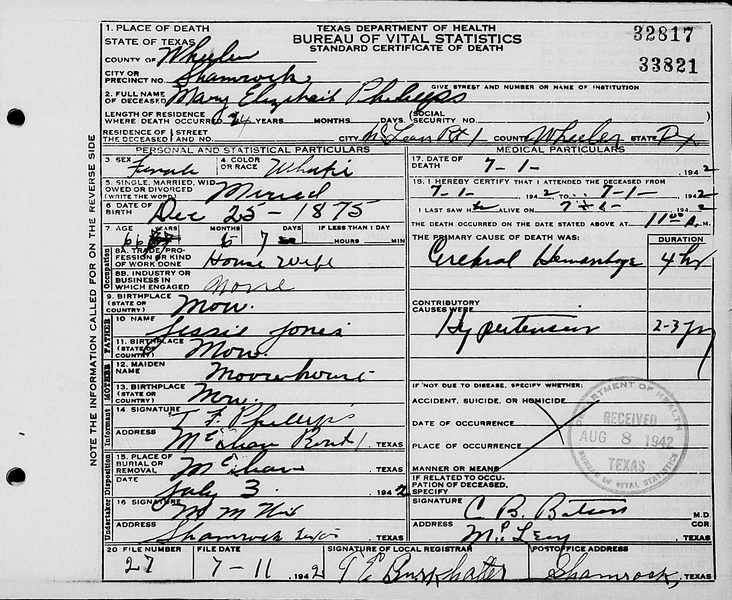 TEXAS DEPARTMENT OF HEALTH
BUREAU OF VITAL STATISTICS
STANDARD CERTIFICATE OF DEATH
32817
33821
1. PLACE OF DEATH
STATE OF TEXAS
COUNTY OF Wheeler
CITY OR
PRECINCT NO. Shamrock
GIVE STREET AND NUMBER OR NAME OF INSTITUTION
2. FULL NAME
OF DECEASED Mary Elizabeth Phillips
LENGTH OF RESIDENCE
WHERE DEATH OCCURRED YEARS MONTHS DAYS (SOCIAL
SECURITY NO.
RESIDENCE OF THE DECEASED STREET AND NO. CITY McLean Rt 1 COUNTY Wheeler STATE Tx
PERSONAL AND STATISTICAL PARTICULARS
3. SEX Female 4. COLOR OR RACE White
5. SINGLE, MARRIED, WIDOWED OR DIVORCED
(WRITE THE WORD)
6 DATE OF
BIRTH Dec 25 - 1875
7 AGE YEARS MONTHS DAYS IF LESS THAN 1 DAY
66 6 7 HOURS MIN
8A. TRADE, PROFESSION OR KIND
OF WORK DONE House Wife
8B. INDUSTRY OR
BUSINESS IN
WHICH ENGAGED None
9. BIRTHPLACE
(STATE OR
COUNTRY) Mow.
10 NAME Jessie Jones
11. BIRTHPLACE
(STATE OR
COUNTRY) Mow.
12. MAIDEN
NAME
13. BIRTHPLACE
(STATE OR
COUNTRY) Mow.
14 SIGNATURE T F Phillips
ADDRESS TEXAS
15. PLACE OF
BURIAL OR
REMOVAL TEXAS
DATE July 3. 1942
16 SIGNATURE
ADDRESS Shamrock Texas TEXAS
20 FILE NUMBER FILE DATE
27 7-11 1942
MEDICAL PARTICULARS
17. DATE OF
DEATH 7-1- 1942
18. I HEREBY CERTIFY THAT I ATTENDED THE DECEASED FROM
7-1- 1942 TO 7-1- 1942
I LAST SAW H ALIVE ON 7-1- 1942
THE DEATH OCCURRED ON THE DATE STATED ABOVE AT 11 00 A. M.
THE PRIMARY CAUSE OF DEATH WAS: DURATION
Cerebral Hemorrhage 4 hr
CONTRIBUTORY
CAUSES WERE
Hypertension 2-3 yr
IF NOT DUE TO DISEASE, SPECIFY WHETHER:
ACCIDENT, SUICIDE, OR HOMICIDE
DATE OF OCCURRENCE
PLACE OF OCCURRENCE
MANNER OR MEANS
IF RELATED TO OCCUPATION OF DECEASED,
SPECIFY
SIGNATURE C. B. Batson M.D.
COR.
ADDRESS TEXAS
SIGNATURE OF LOCAL REGISTRAR POSTOFFICE ADDRESS
Burkhalter Shamrock, TEXAS
DEPARTMENT OF HEALTH
RECEIVED
AUG 8 1942
TEXAS
BUREAU OF VITAL STATISTICS
NOTE THE INFORMATION CALLED FOR ON THE REVERSE SIDE
Occupation
FATHER
MOTHER
Informant
Disposition
Undertaker